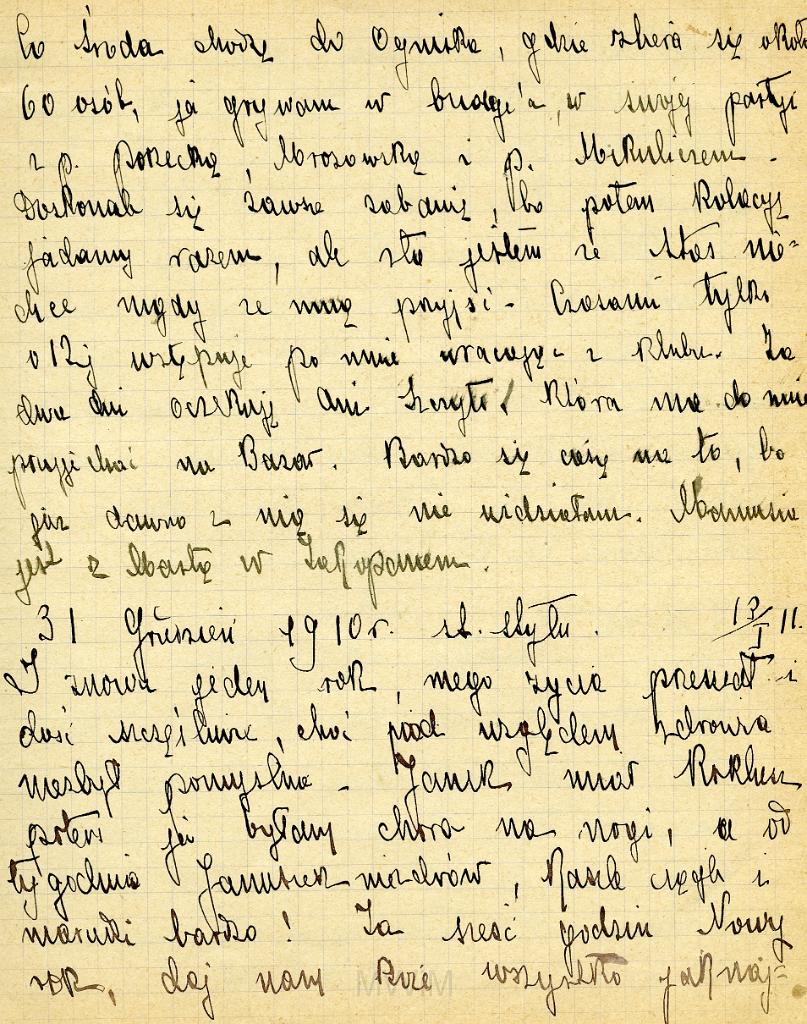 Co środa chodzę do Ogniska, gdzie zbiera się około
60 osób, ja grywam w bridge'a, w swojej partyi
z p. Porecką, Mrozowską i p. Mikuliczem.
Doskonale się zawsze zabawię, bo potem kolacyę
jadamy razem, ale zła jestem że Staś nie-
chce nigdy ze mną przyjść. Czasami tylko
o 12ej wstępuje po mnie wracając z klubu. Za
dwa dni oczekuję Ani która ma do mnie
przyjechać na Bazar. Bardzo się cieszę na to, bo
już dawno z nią się nie widziałam. Mamusia
jest z Martą w Zakopanem.
31 Grudzień 1910 r. st. stylu. 13/I 11.
I znowu jeden rok, mego życia przeszedł i
dość szczęśliwie, choć pod względem zdrowia
niezbyt pomyślnie. Janek miał koklusz
potem ja byłam chora na nogi, a od
tygodnia Janusiek niezdrów, kaszle ciągle i
marudki bardzo! Za sześć godzin Nowy
rok, daj nam Boże wszystko jaknaj-
MWM